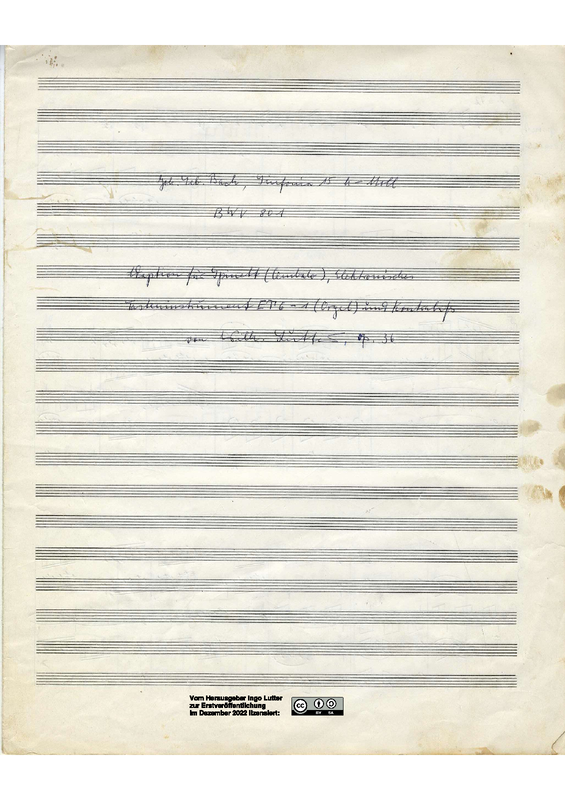 Joh. Seb. Bach, Sinfonia 15 h-Moll
BWV 801
Adaption für Spinett (Cembalo), Elektronisches
Tasteninstrument ETI 6-1 (Orgel) und Kontrabaß
von Walter Lutter, op. 36
Vom Herausgeber Ingo Lutter
zur Erstveröffentlichung
im Dezember 2022 lizensiert:
cc
BY SA